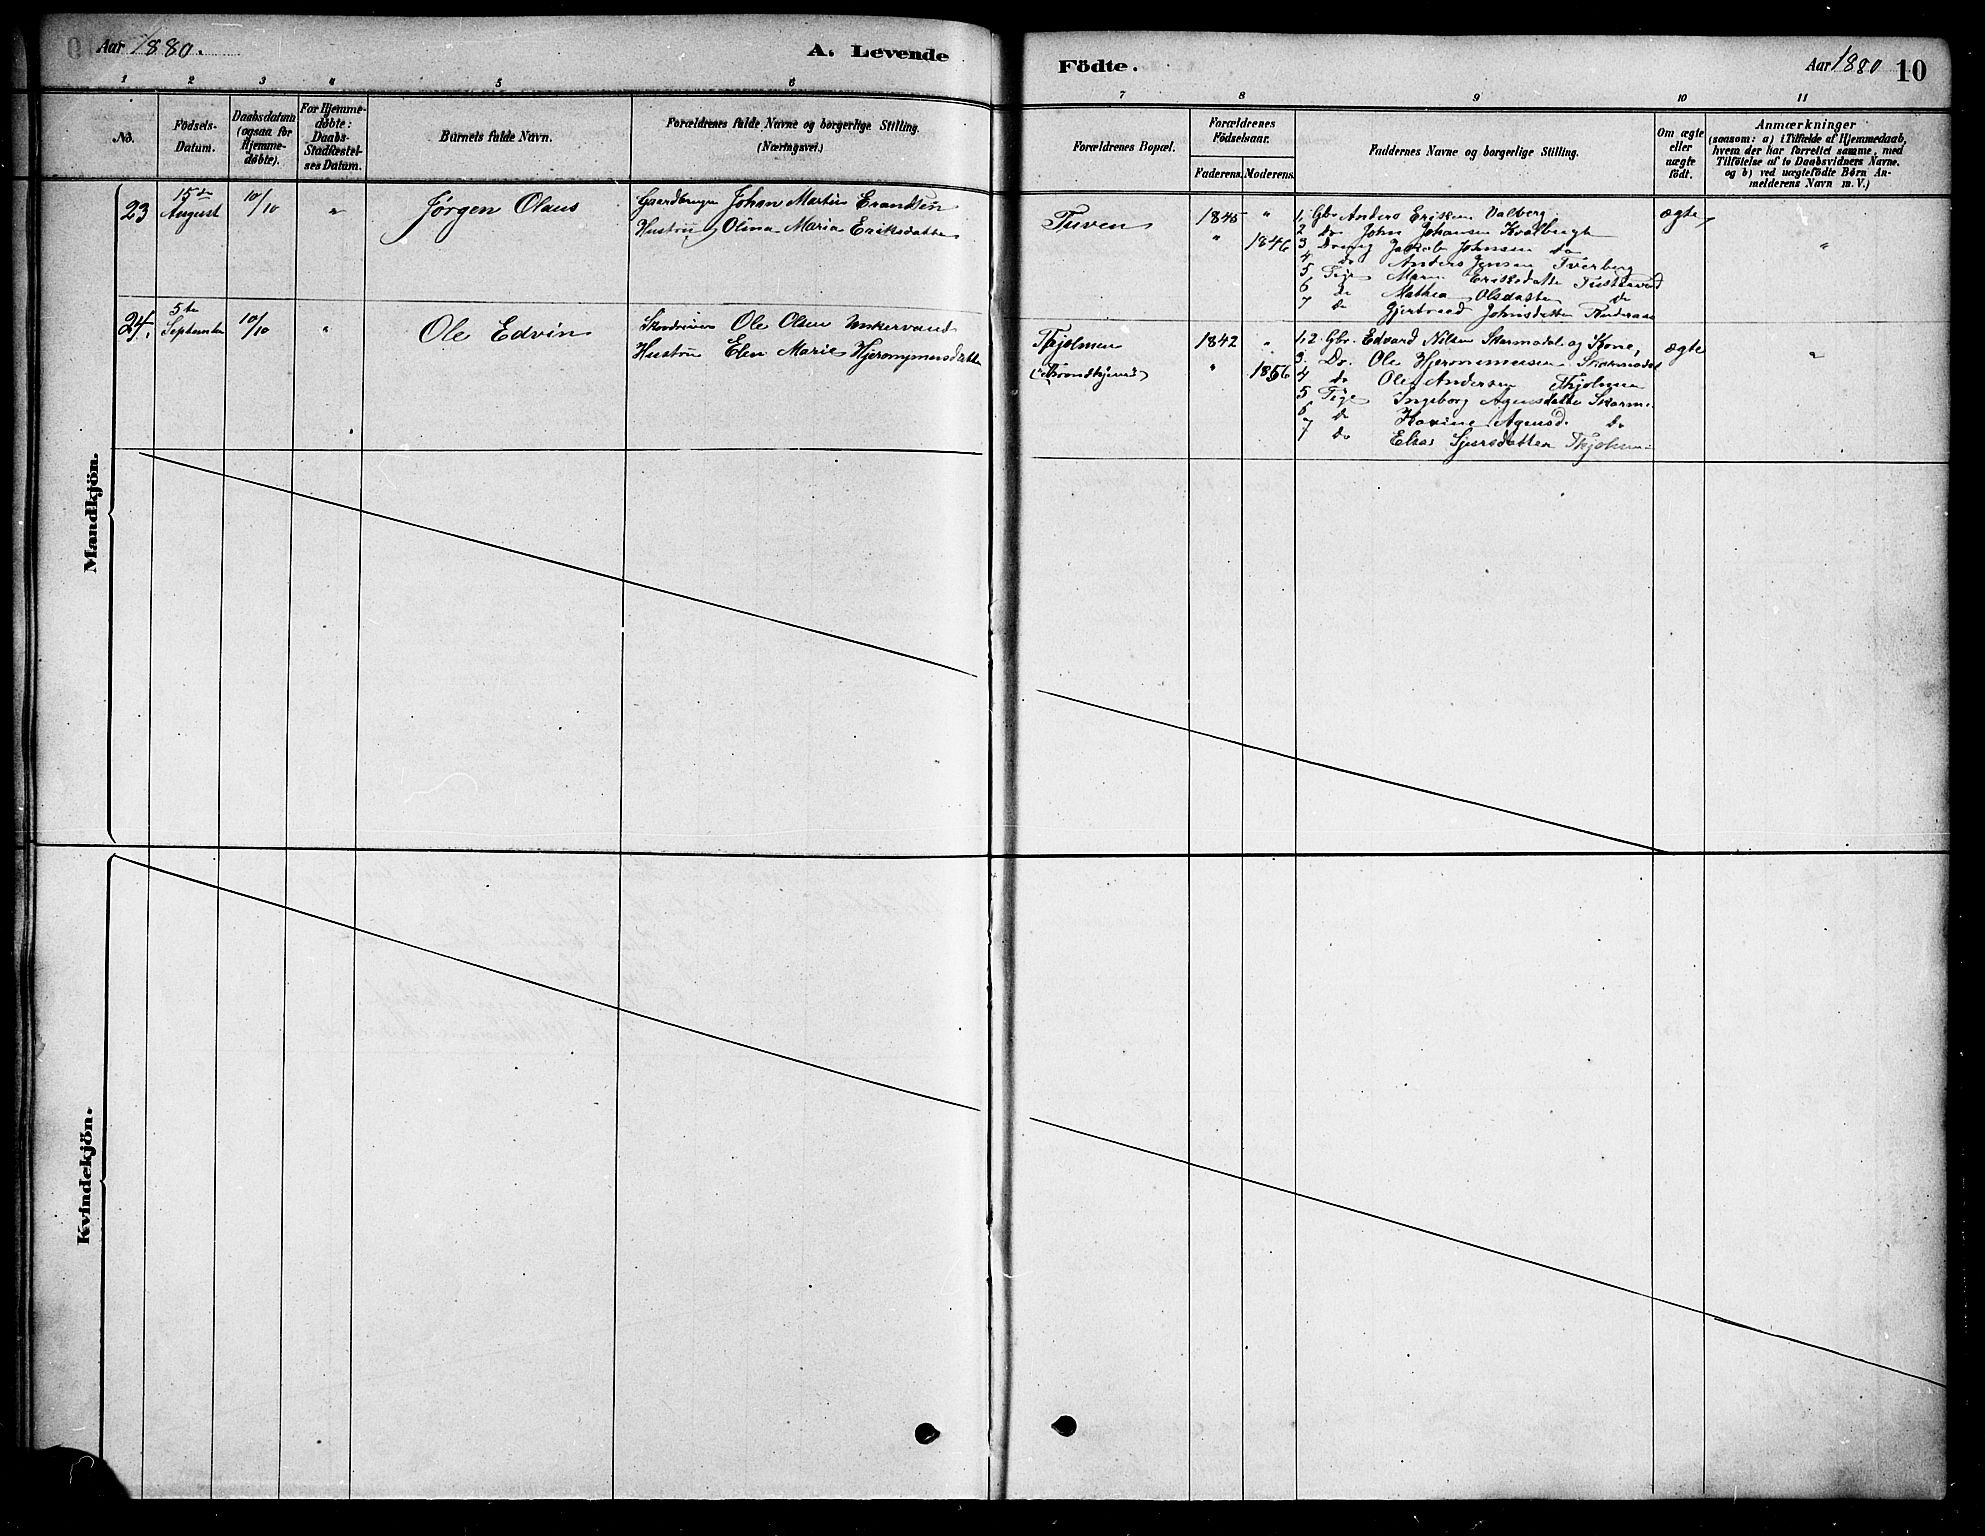 Aar 1880.
A. Levende
Födte.
Aar 1880
10
1 2 3 4 5 6 7 8 9 10 11
No.
Födsels-
Datum.
Daabsdatum
(ogsaa for
Hjemme-
døbte).
For Hjemme-
døbte:
Daabs-
Stadfæstel-
ses Datum.
Barnets fulde Navn.
Forældrenes fulde Navne og borgerlige Stilling.
(Næringsvei.)
Forældrenes Bopæl.
Forældrenes
Födselsaar.
Faderens. Moderens.
Faddernes Navne og borgerlige Stilling.
Om ægte
eller
uægte
født.
Anmærkninger
(saasom: a) i Tilfælde af Hjemmedaab,
hvem der har forrettet samme, med
Tilföielse af to Daabsvidners Navne.
og b) ved uægtefödte Børn An-
melderens Navn m. V.)
Mandkjön.
23
15de
August
10/10
"
Jørgen Olaus
Johan Martin
Hustru Olina Maria Eriksdatter
Tuven
1845 "
" 1846
1, Gbr. Anders Eriksen Valberg
2 Do John Johansen
3 Jakob Johnsen Do
4 do Anders Jensen Tverberg
5 Pige Maren Eriksdatter
6 do Mathea Olsdatter do
7 do Johnsdatter
ægte
"
24.
5te
September
10/10
"
Ole Edvin
Ole Olsen
Hustru Elen Marie
1842 "
" 1856
1,2 Gbr. Edvard Nilsen Skarmodal og Kone,
3, Do. Ole
4 do Ole Andersen
5 Pige Ingeborg
6 do
7 do Sjursdatter
ægte
"
Kvindekjön.